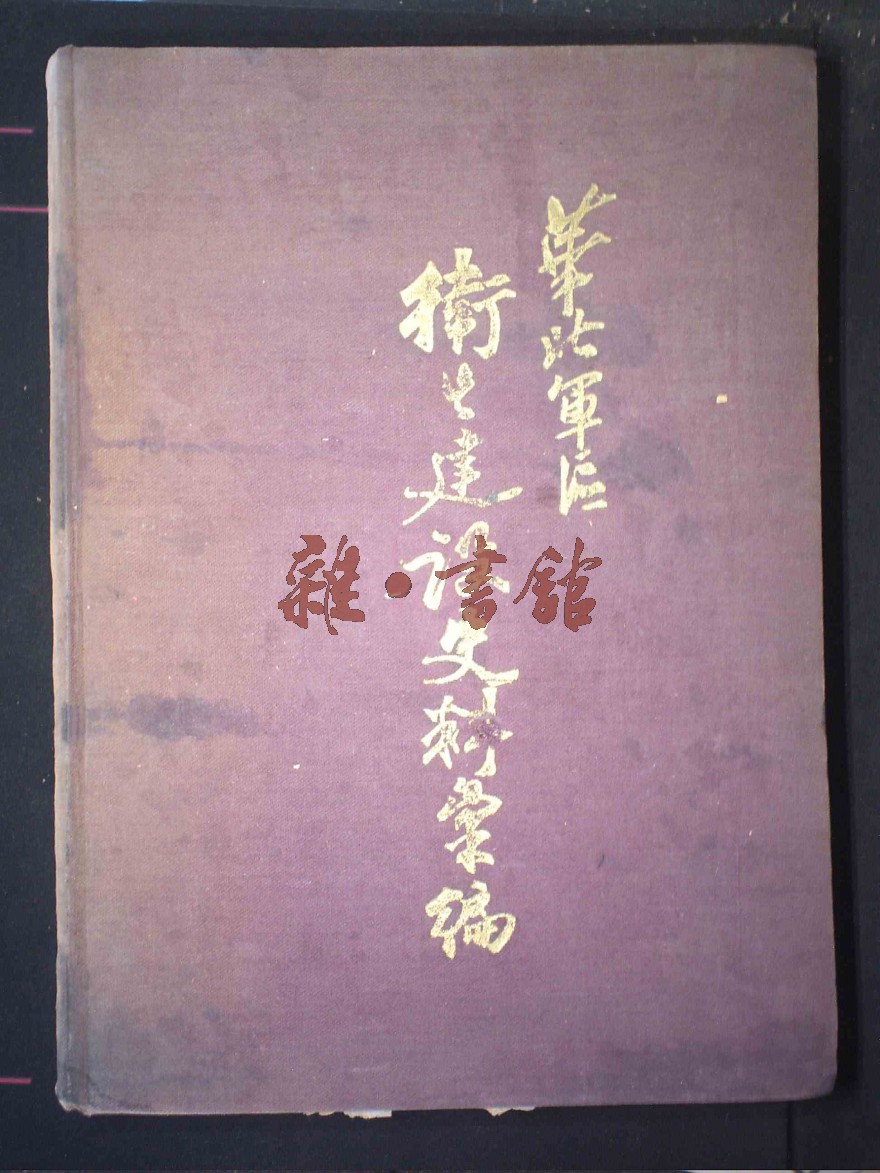 華北軍區
衛生建設史料彙編
雜·書館